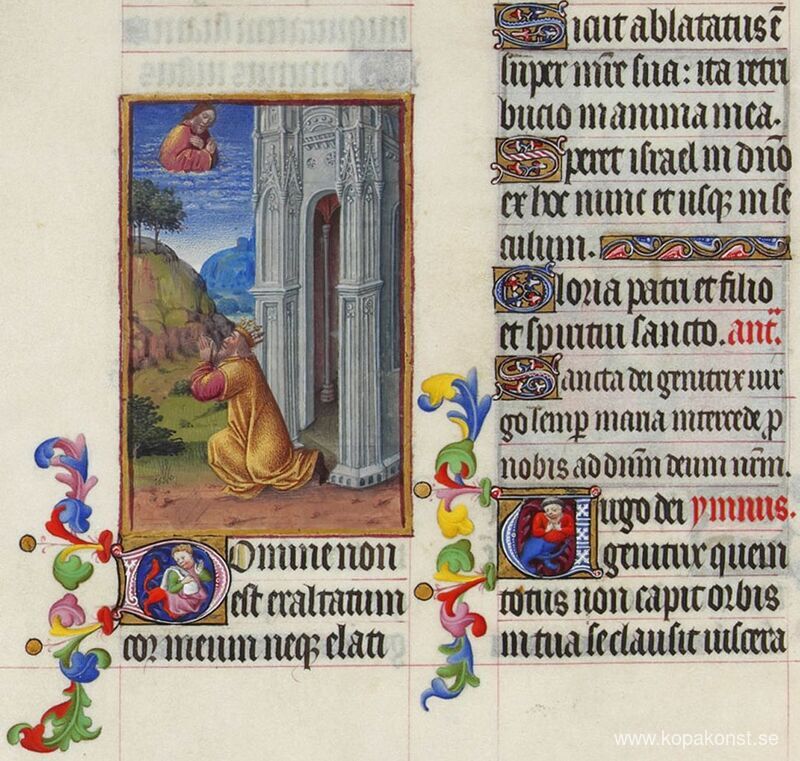 Domine non
est exaltatum
cor meum neqꝫ elati
Sicut ablatatus ē
super mr̄e sua: ita retri
bucio in anima mea.
Speret israel in dn̄o
ex hoc nunc et usqꝫ in se
culum.
Gloria patri et filio
et spiritui sancto. ant̄.
Sancta dei genitrix uir
go semꝑ maria intercede ꝓ
nobis ad dn̄m deum nr̄m.
Uirgo dei ymnus.
genitrix quem
totus non capit orbis
in tua se clausit uiscera
www.kopakonst.se